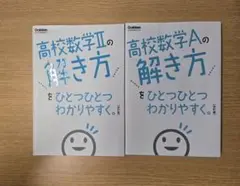 Gakken
高校数学Ⅱの
解き方
を
ひとつひとつ
わかりやすく。
Gakken
高校数学Aの
解き方
を
ひとつひとつ
わかりやすく。